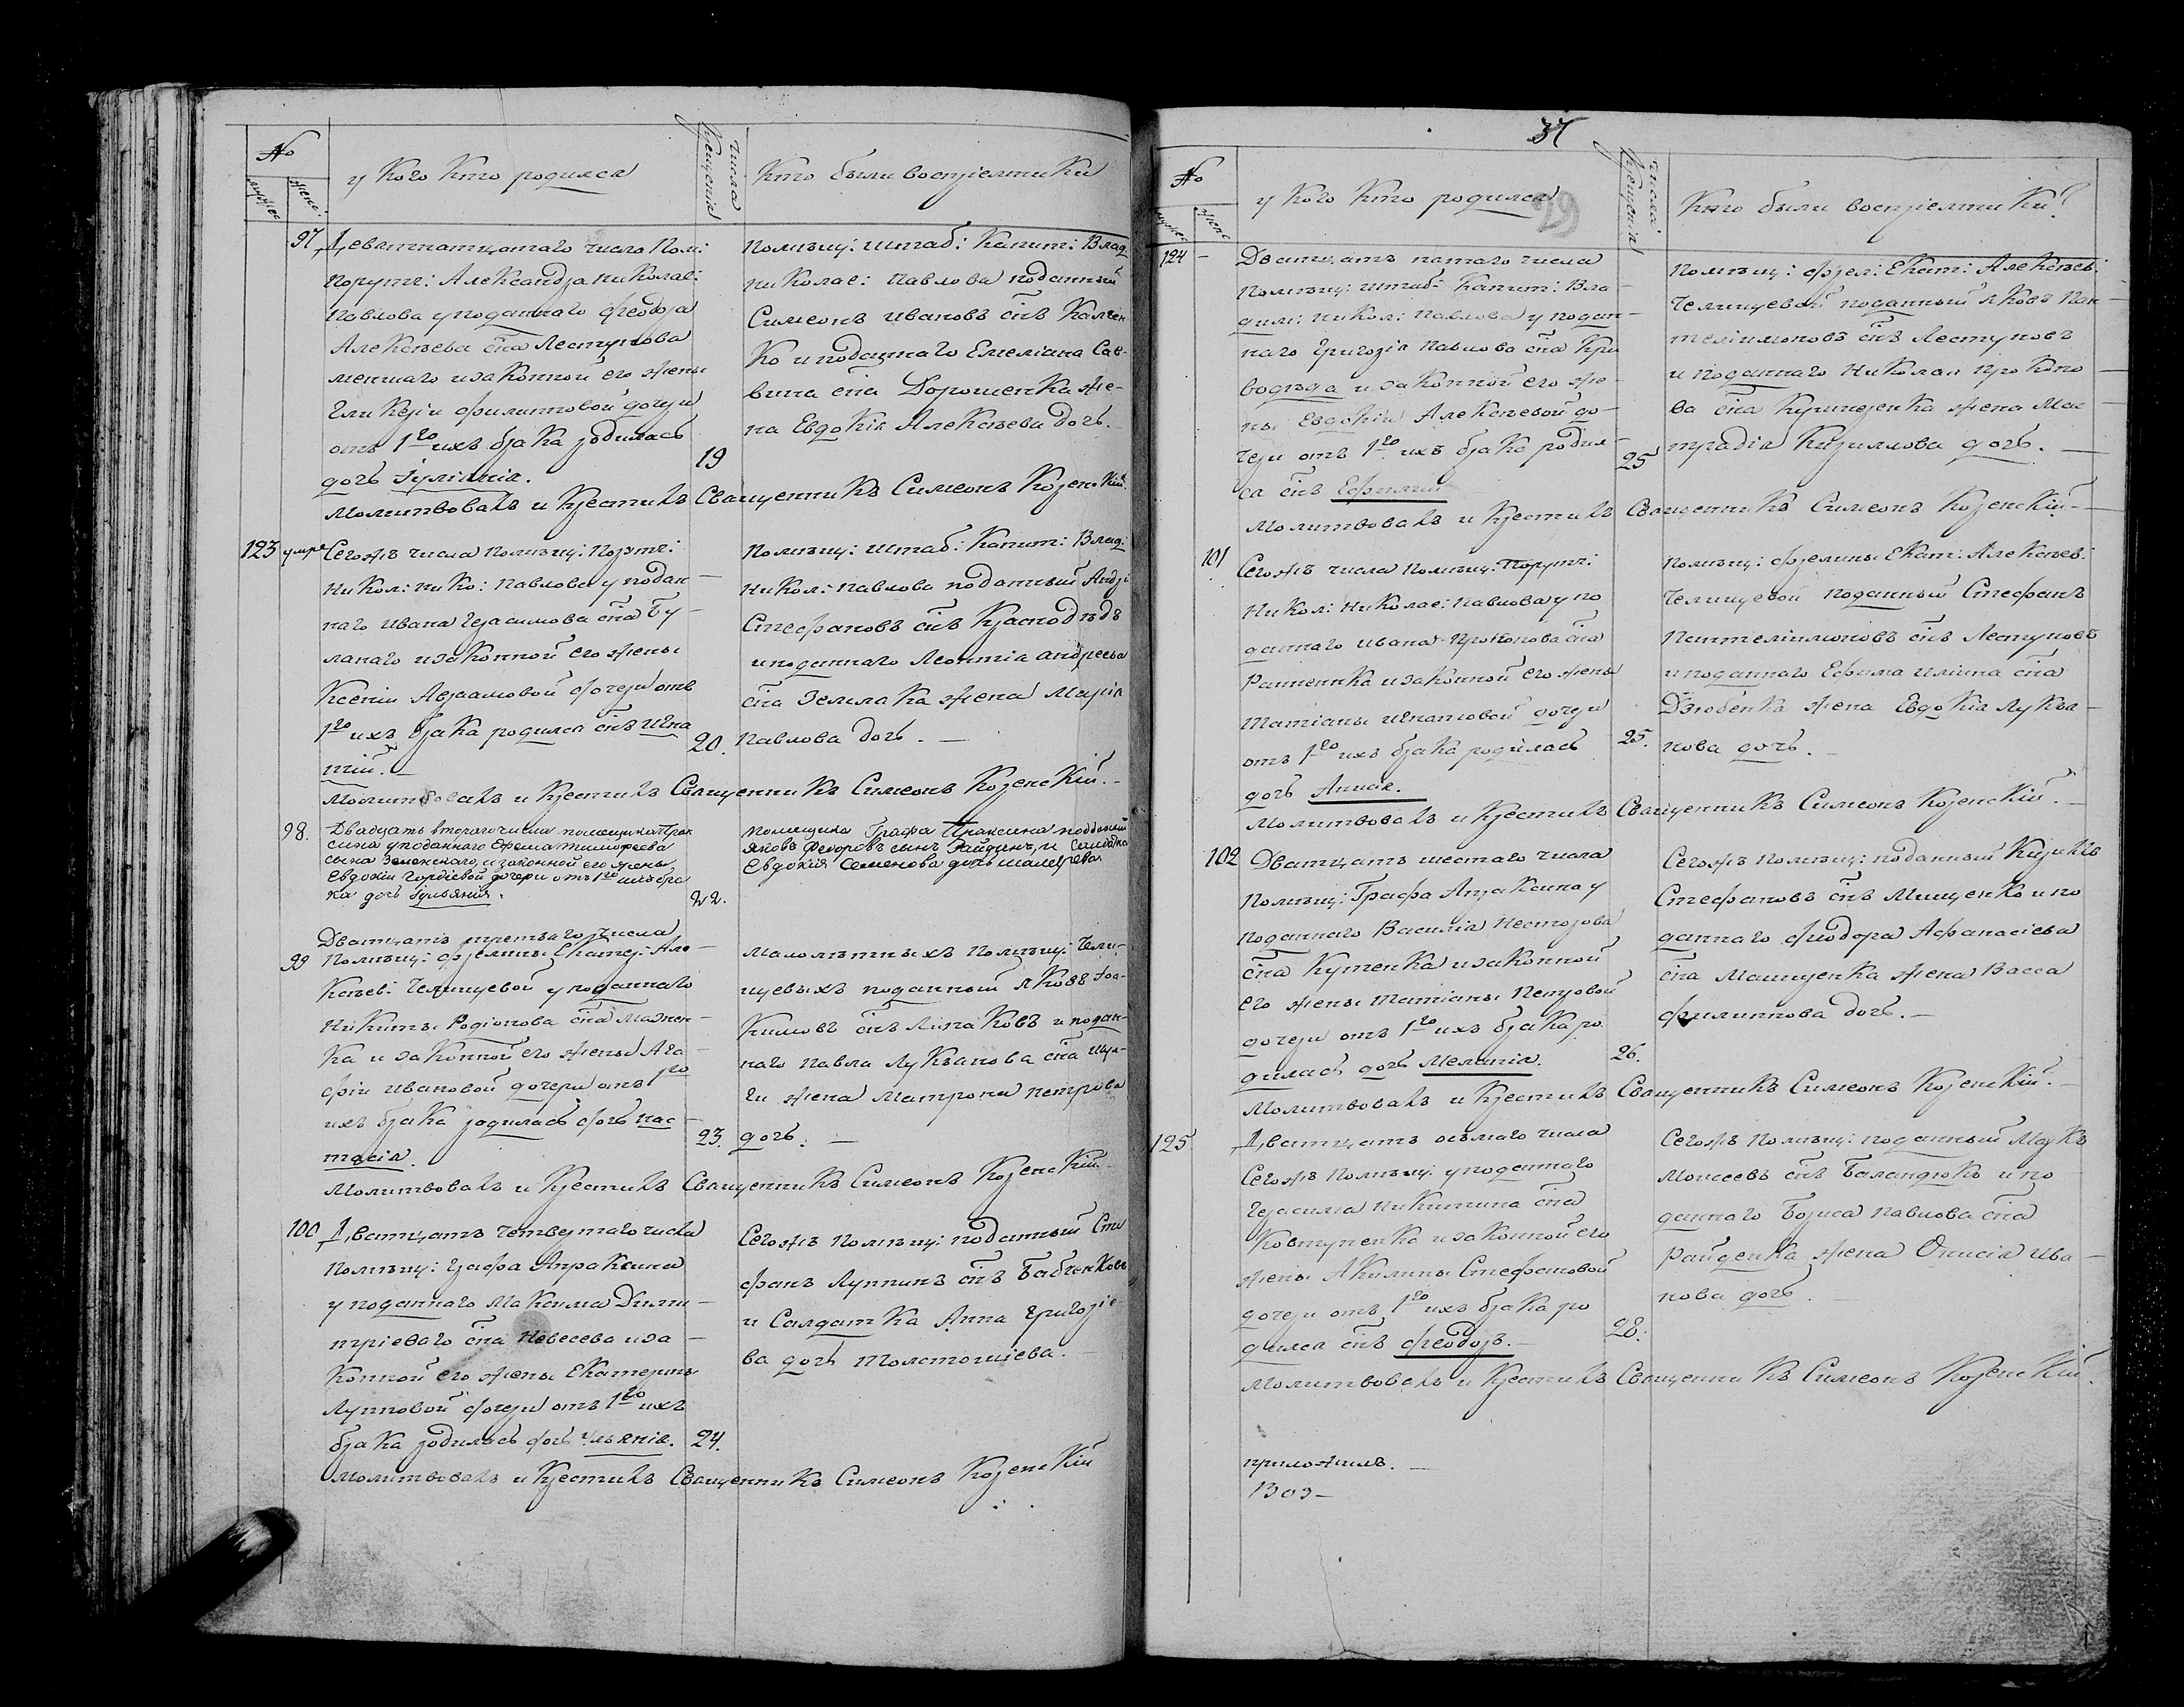 №
мужес
женс:
у кого кто родился
числа крещенія
кто были воспріемники
97
Девятнатцатаго числа Помѣ:
Порутч: Александра николае:
Павлова у поданнаго Феодора
Алексѣева сна Лестунова
меншаго и законной его жены
Гликеріи Филиповой дочери
отъ 1го ихъ брака родилась
дочь Іуліанія.
19
помѣщи: штаб: Капит: Влад
николае: Павлова поданный
Симеонъ ивановъ снъ Калчен
ко и поданнаго Емеліана Сав-
вина сна Дорошенка же-
на Евдокія Алексѣева дочь.
Молитвовалъ и крестилъ Священникъ Симеонъ Козенскій.
123
умре
Сегожъ числа помѣщ: порутч:
Никол: нико: павлова у подан-
наго ивана Герасимова сна Бу-
ланаго и законной его жены
Ксеніи Авраамовой дочери отъ
1го ихъ брака родился снъ Игна
тій.
20.
Помѣщи: штаб: Капит: Влад:
никол: павлова поданный Андр:
Стефановъ снъ Краснодѣдъ
и поданнаго Леонтіа андреева
сна Зелмака жена Марія
павлова дочь.
Молитвовалъ и крестилъ Священникъ Симеонъ Козенскій.
98.
Двадцать втораго числа помещика Прак
сина у поданнаго Ефима тимофеева
сына Зеленскаго, и законной его жены
Евдокіи Гордіевой дочери отъ 1го ихъ бра
ка дочь Іульянія.
22.
помещика Графа Праксина подданый
яковъ Федоровъ синъ Райдинъ, и Салдатка
Евдокія Семенова дочь
99
Дватцать третьего числа
помѣщ: фрелины Екатер: Але-
ксѣев: Челищевой у поданнаго
никиты Родіонова сна мазнен-
ка и законной его жены Ага-
фіи ивановой дочери отъ 1го
ихъ брака родилась дочь нас-
тасія.
23.
малолѣтныхъ помѣщ: Чели-
щевыхъ поданный яковъ Іоа-
кимовъ снъ Липаковъ и подан-
наго павла Лукьянова сна
жена матрона петрова
дочь.
Молитвовалъ и крестилъ Священникъ Симеонъ Козенскій.
100
Дватцать четвертаго числа
помѣщ: графа Апраксина
у поданнаго Максима Дими-
тріеваго сна Невесева и за-
конной его жены Екатерины
Лупповой дочери отъ 1го ихъ
брака родилась дочь Ульянія.
24.
Сегожъ помѣщ: поданный Сте
фанъ Луппинъ снъ Бабченковъ
и Салдатка Анна Григоріе-
ва дочь Толстошіева.
Молитвовалъ и крестилъ Священникъ Симеонъ Козенскій
37
29
№
мужес
женс
у кого кто родился
числа крещенія
кто были воспріемники?
124
Дватцать пятаго числа
помѣщи: штаб: Капит: Вла-
дим: никол: павлова у подан-
наго Григорія павлова сна Кри
водѣда и законной его же-
ны Евдокіи Алексѣевой до-
чери отъ 1го ихъ брака родил-
ся снъ Ефимій
25
помѣщ: фрел: Екат: Алексѣев:
Челищевой поданный яковъ Пан-
телиимоновъ снъ Лестуновъ
и поданнаго николая прокопо-
ва сна Кушнеренка жена Ма
Кириллова дочь.
Молитвовалъ и крестилъ Священникъ Симеонъ Козенскій.
101
Сегожъ числа помѣщ: порутч:
Никол: николае: павлова у по
даннаго ивана прокопова сна
Ранненка и законной его жены
татіаны игнатовой дочери
отъ 1го ихъ брака родилась
дочь Анная.
25.
помѣщ: фрелины Екат: Алексѣев:
Челищевой поданный Стефанъ
пантелиимоновъ снъ Лестуновъ
и поданнаго Ефима илина сна
Дзюбенка жена Евдокія Лукья-
нова дочь.
Молитвовалъ и крестилъ Священникъ Симеонъ Козенскій.
102
Дватцать шестаго числа
Помѣщ: Графа Апраксина у
поданнаго Василіа Нестерова
сна Кутенка и законной
его жены татіаны петровой
дочери отъ 1го ихъ брака ро
дилась дочь Меланія.
26.
Сегожъ помѣщ: поданный Кирилъ
Стефановъ снъ Мищенко и по
даннаго Феодора Афанасіева
сна Мащенка жена Васса
Филиппова дочь.
Молитвовалъ и крестилъ Священникъ Симеонъ Козенскій.
125
Дватцать осьмаго числа
Сегожъ помѣщ: у поданнаго
Герасима никитина сна
Ковтуненка и законной его
жены Акилины Стефановой
дочери отъ 1го ихъ брака ро
дился снъ Феодоръ.
28.
Сегожъ помѣщ: поданный Марко
Моисеевъ снъ Баландюкъ и по
даннаго Бориса павлова сна
Райденка жена Онисія ива-
нова дочь.
Молитвовалъ и крестилъ Священникъ Симеонъ Козенскій.
приложилъ.
1303